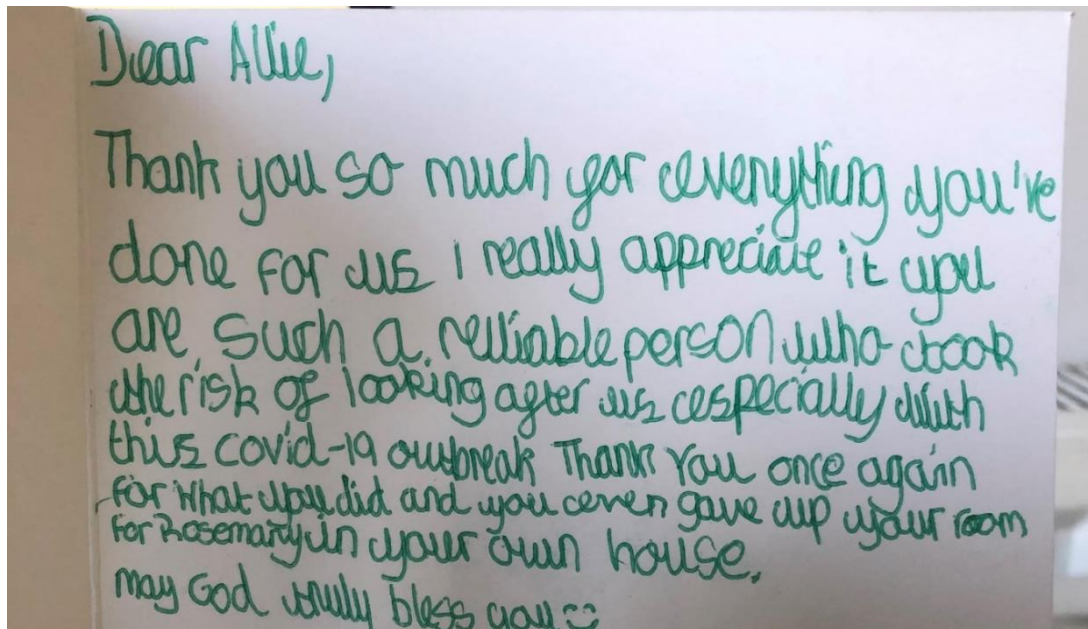 Dear Allie,
Thank you so much for everything you've
done for us I really appreciate it you
are such a relliable person who took
the risk of looking after us especially with
this covid-19 outbreak Thank You once again
for what you did and you even gave up your room
for Rosemary in your own house.
may God truly bless you☺